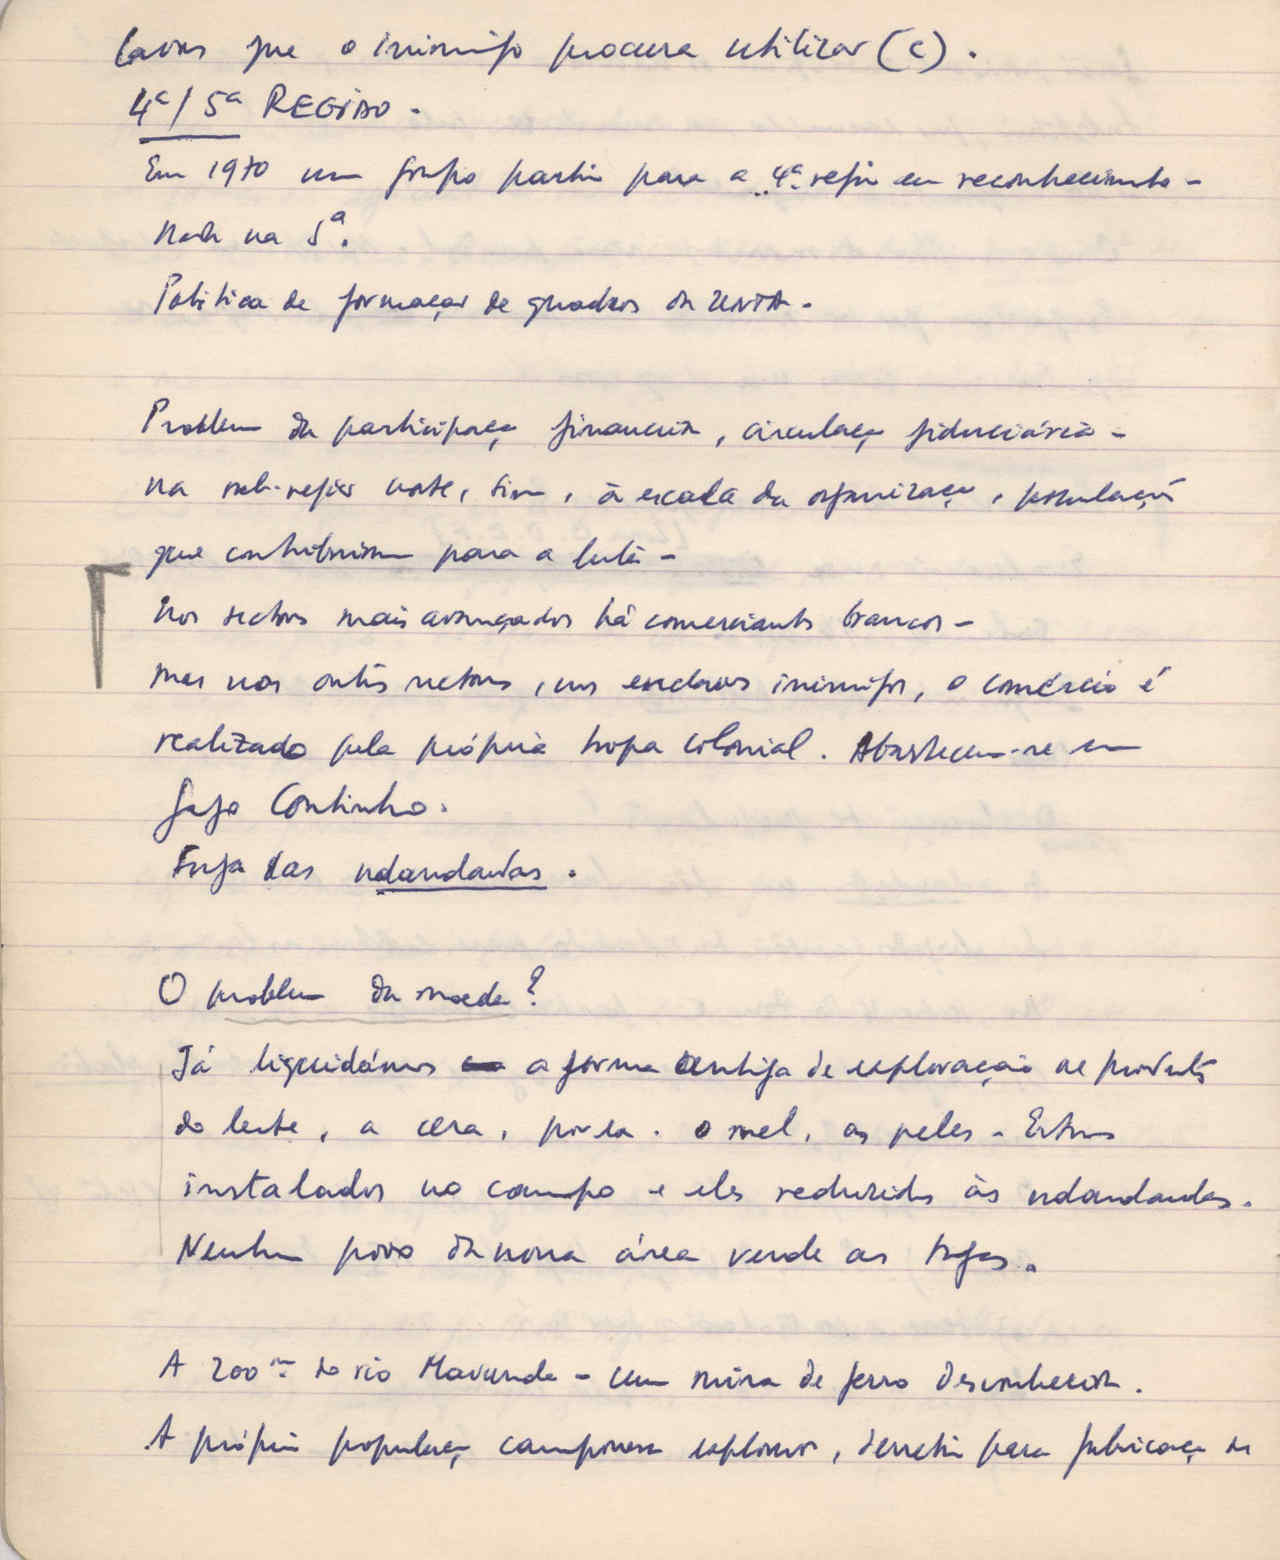 que o inimigo procura utilizar (c).
4ª / 5ª REGIÃO -
Em 1970 um grupo partiu para a 4ª região em reconhecimento -
Nada na 5ª.
Politica de formação de quadros da UNITA -
Problema da participação financeira, circulação fiduciária -
na sub-região norte, sim, à escala da organização, população
que contribuiram para a luta -
Nos sectores mais avançados há comerciantes brancos -
mas nos outros sectores, nos enclaves inimigos, o comércio é
realizado pela própria tropa colonial. Abastecem-se em
Gago Coutinho.
Fuga das ndandandas.
O problema da moeda?
Já liquidámos a forma antiga de exploração de produtos
do leste, a cera, por ex. o mel, as peles - Estamos
instalados no campo e eles reduzidos às ndandandas.
Nenhum povo da nossa área vende às tropas.
A 200m do rio Mavunda - uma mina de ferro desconhecida.
A própria população camponesa explorava, derretia para fabricação de